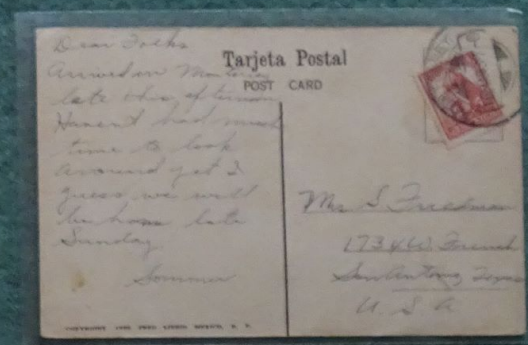 Tarjeta Postal
POST CARD
Dear Folks
Arrived in Monterrey
late this afternoon
Haven't had much
time to look
around yet I
guess we will
be home late
Sunday
Sommer
Mr S Friedman
1734 W. French
San Antonio Texas
U. S. A
COPYRIGHT
MEXICO, D. F.